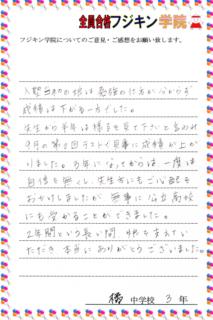 全員合格フジキン学院
フジキン学院についてのご意見・ご感想をお願い致します。
入塾当初の頃は勉強の仕方が分からず
成績は下がる一方でした。
先生から半年は様子を見て下さいと言われ
9月の第2回テストで見事に成績が上が
りました。3年になってからは一度は
自信を無くし、先生方にもご心配を
おかけしましたが無事に公立高校
にも受かることができました。
2年間という長い間 娘を支えてい
ただき本当にありがとうございました。
中学校 3年